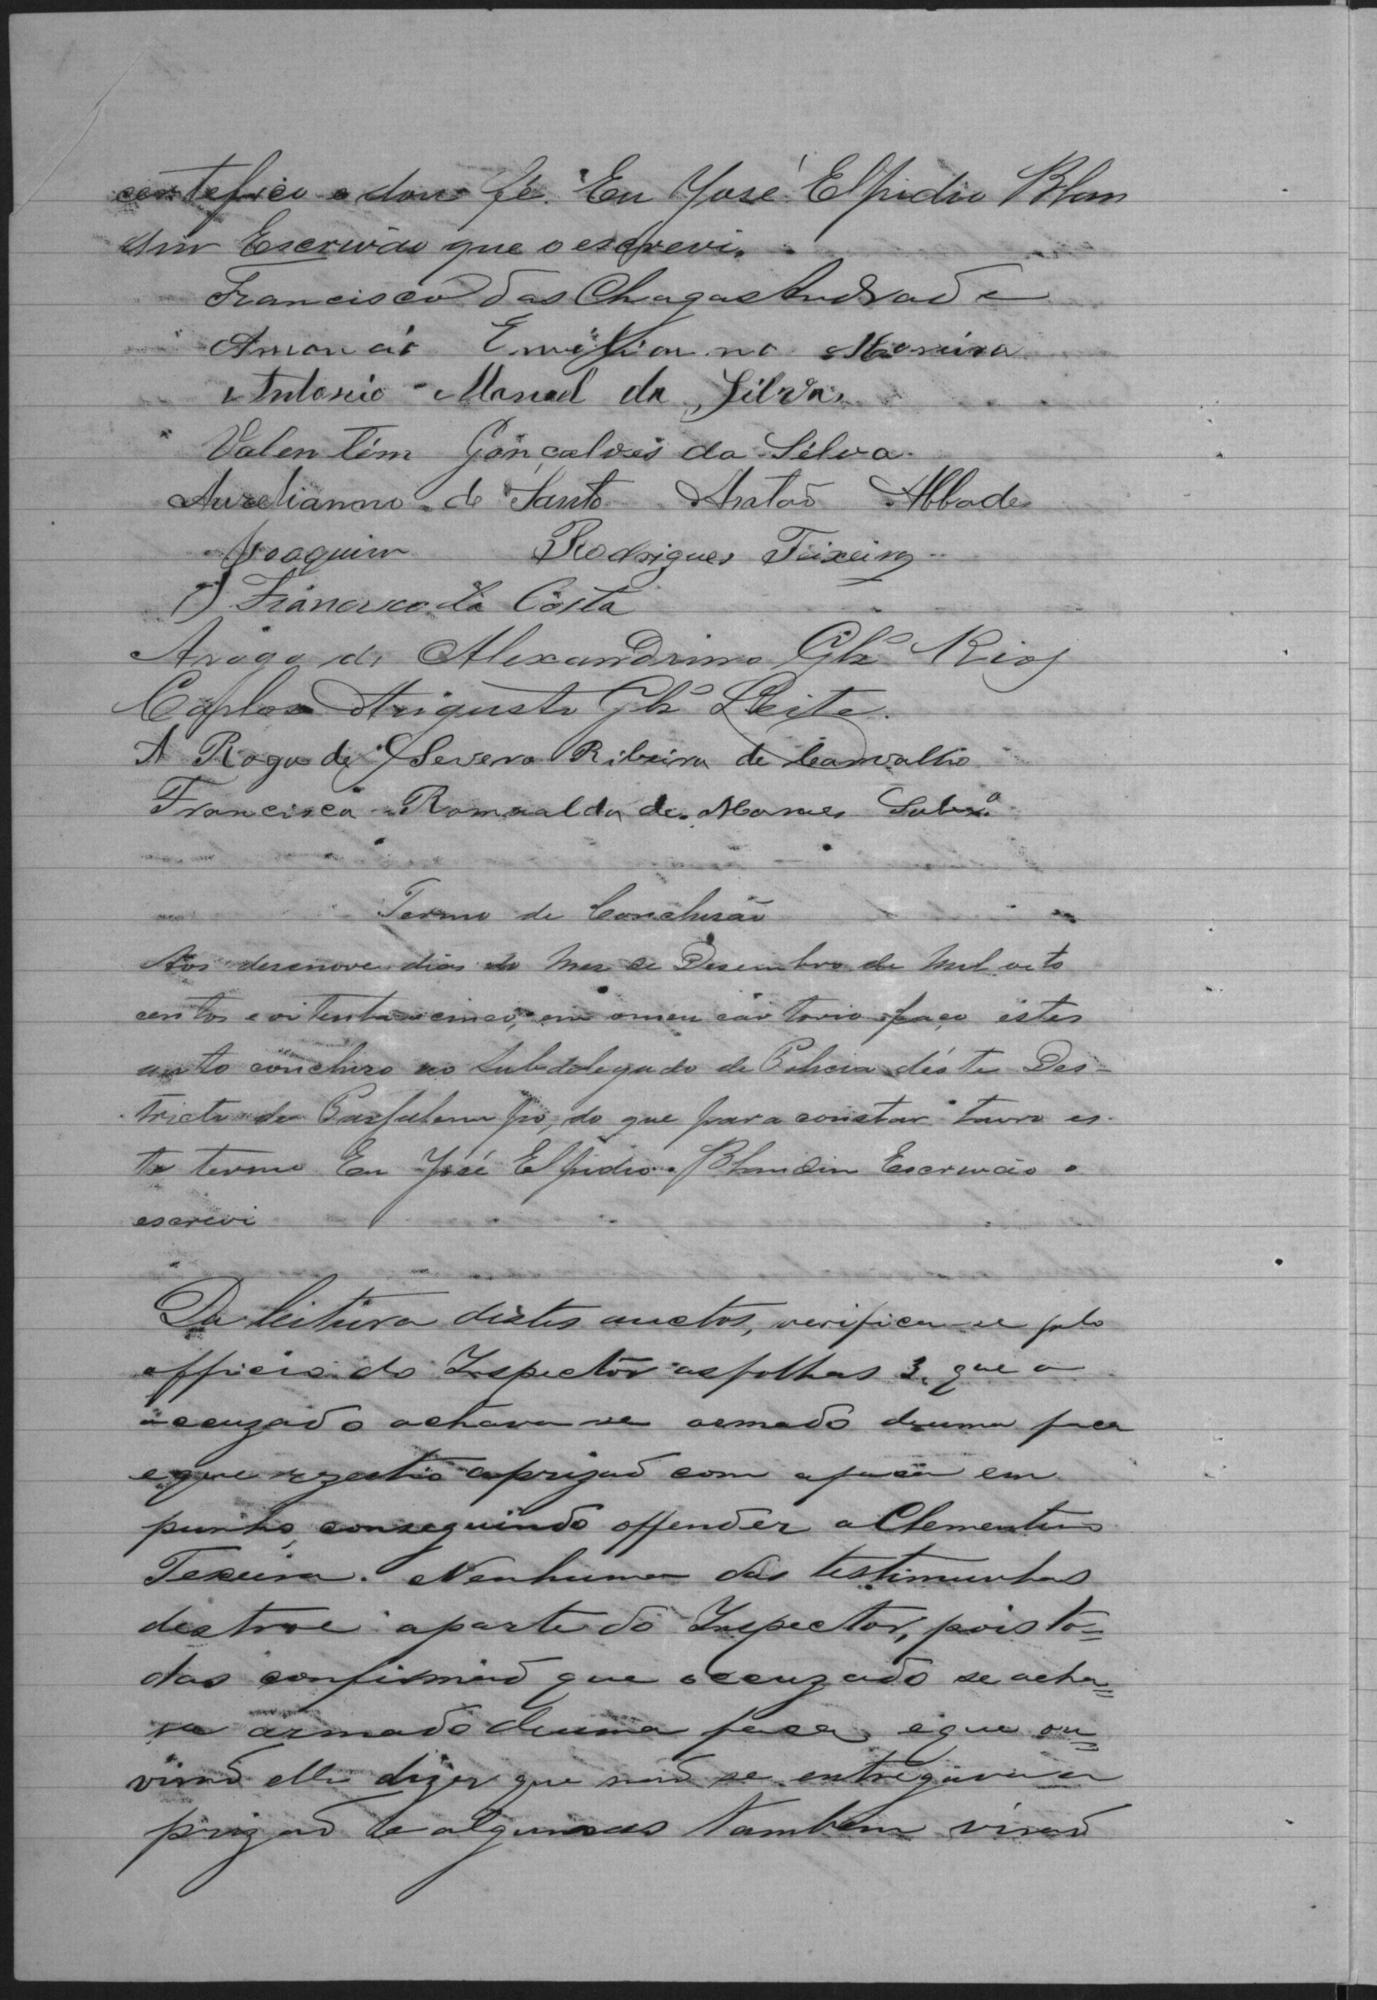 certefico e dou fé. Eu José Elpidio Blan
din Escrivão que o escrevi.
Francisco das Chagas Andrade
Amancio Emigliano Moreira
Antonio Manoel da Silva
Valentim Gonçalves da Silva
Aurelianno de Santo Abbade
Joaquim Rodrigues Teixeira
Francisco da Costa
Arogo de Alexandrino Glz Rios
Carlos Augusto Glz Leite.
A Rogo de Severo Ribeiro de Carvalho
Francisco Romualdo de Moraes Sobrº
Termo de Conclusão
Aos desenove dias do mes de Desembro de mil oito
centos e oitenta e cinco, em o meu cartorio faço estes
auto concluso ao Subdelegado de Policia déste Des-
tricto de do que para constar lavro es-
te termo Eu José Elpidio Blandin Escrivão o
escrevi
Da leitura déstes auctos, verifica-se pelo
officio do Inspector as folhas 3. que o
accuzado achava-se armado d'uma faca
e que rezestio a prizaõ com a faca em
punho, conseguindo offender a Clementino
Texeira. Nenhuma das testimunhas
destroe a parte do Inspector, pois to=
das confirmaõ que o accuzado se acha=
va armado d'uma faca, e que ou=
viraõ elle dizer que naõ se entregava a
prizaõ e algumas tambem viraõ